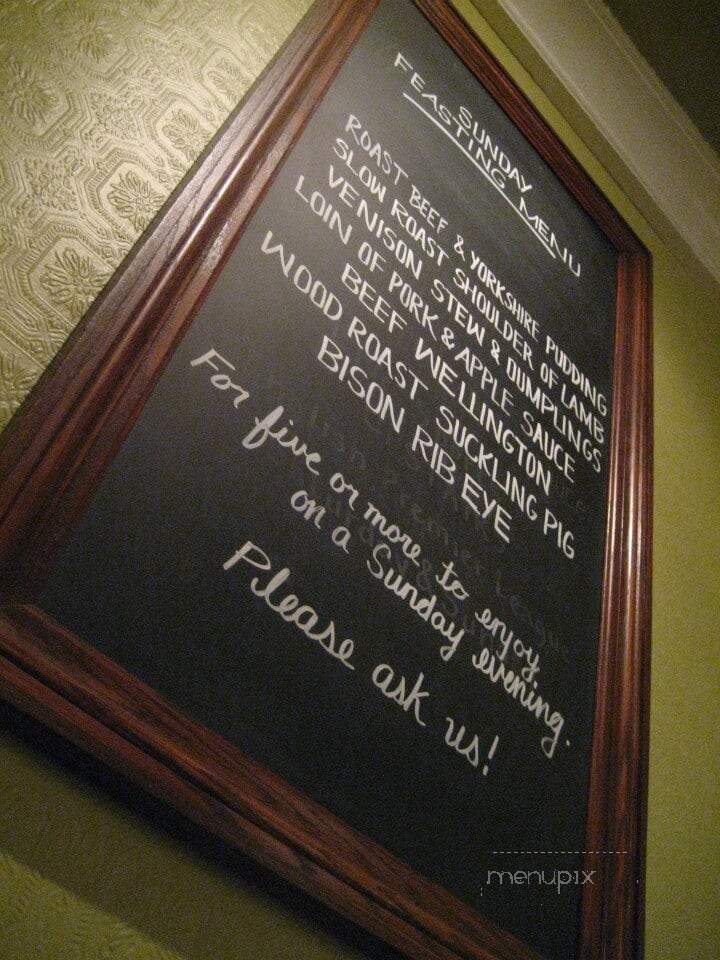 SUNDAY
FEASTING MENU
ROAST BEEF & YORKSHIRE PUDDING
SLOW ROAST SHOULDER OF LAMB
VENISON STEW & DUMPLINGS
LOIN OF PORK & APPLE SAUCE
BEEF WELLINGTON
WOOD ROAST SUCKLING PIG
BISON RIB EYE
For five or more to enjoy
on a Sunday evening.
Please ask us!
menupix